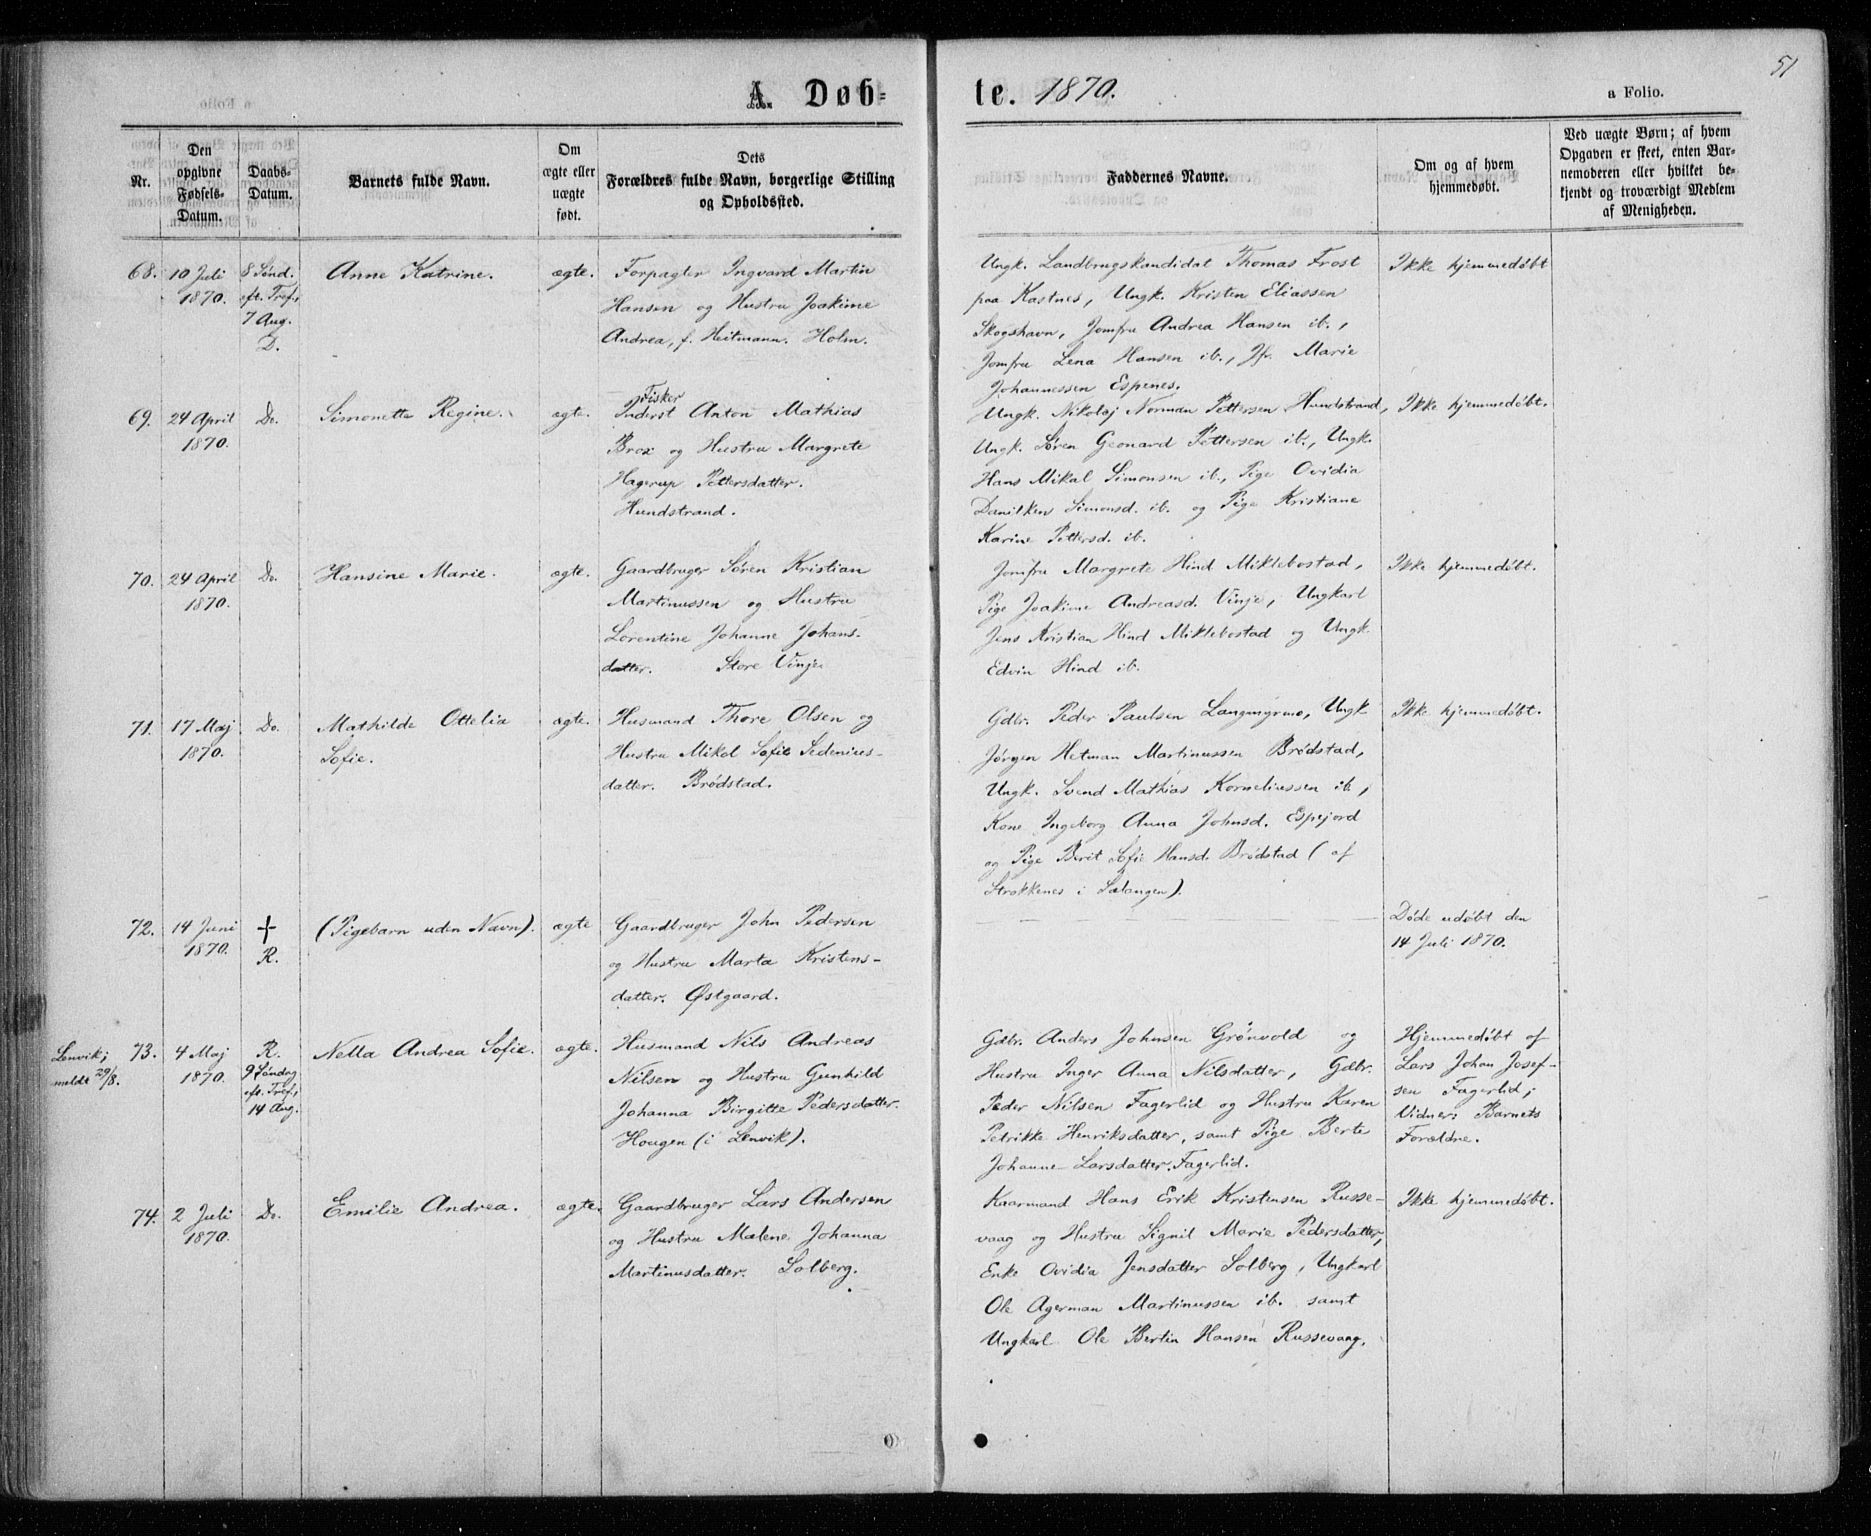 51
A. Døb=
te. 1870.
a Folio.
Nr.
Den opgivne Fødsels-Datum.
Daabs-Datum.
Barnets fulde Navn.
Om ægte eller uægte født.
Dets Forældres fulde Navn, borgerlige Stilling og Opholdssted.
Faddernes Navne.
Om og af hvem hjemmedøbt.
Ved uægte Børn; af hvem Opgaven er skeet, enten Barnemoderen eller hvilket bekjendt og troværdigt Medlem af Menigheden.
68.
10 Juli
1870.
8 Sønd.
eft. Tref.,
7 Aug.
D.
Anne Katrine.
ægte.
Forpagter Ingvard Martin
Hansen og Hustru Joakime
Andrea, f. Heitmann. Holm.
Ungk. Landbrugskandidat Thomas Frost
paa Kastnes, Ungk. Kristen Eliassen
Skogshavn, Jomfru Andrea Hansen ib.,
Jomfru Lena Hansen ib., Jfr. Marie
Johannessen Espenes.
Ikke hjemmedøbt
69.
24 April
1870.
Do.
Simonette Regine.
ægte.
Fisker
Inderst Anton Mathias
Brox og Hustru Margrete
Hagerup Pettersdatter.
Hundstrand.
Ungk. Nikolaj Norman Pettersen Hundstrand,
Ungk. Søren Geonard Pettersen ib., Ungk.
Hans Mikal Simonsen ib., Pige Ovidia
Danilken Simonsd. ib. og Pige Kristiane
Karine Pettersd. ib.
Ikke hjemmedøbt.
70.
24 April
1870.
Do.
Hansine Marie.
ægte.
Gaardbruger Søren Kristian
Martinussen og Hustru
Lorentine Johanne Johans-
datter. Store Vinje
Jomfru Margrete Hind Miklebostad,
Pige Joakime Andreasd. Vinje, Ungkarl
Jens Kristian Hind Miklebostad og Ungk.
Edvin Hind ib.
Ikke hjemmedøbt.
71.
17 Maj
1870.
Do.
Mathilde Ottelia
Sofie.
ægte.
Husmand Thore Olsen og
Hustru Mikol Sofie Sedenius-
datter. Brødstad.
Gdbr. Peder Paulsen Langmyrmo, Ungk.
Jørgen Hetman Martinussen Brødstad,
Ungk. Svend Mathias Korneliussen ib.,
Kone Ingeborg Anna Johnsd. Espejord
og Pige Berit Sofie Hansd. Brødstad (af
Strokkenes i Salangen).
Ikke hjemmedøbt.
72.
14 Juni
1870.
+
R.
(Pigebarn uden Navn).
ægte
Gaardbruger John Pedersen
og Hustru Marta Kristens-
datter. Østgaard.
Døde udøbt den
14 Juli 1870.
Lenvik;
meldt 29/8.
73.
4 Maj
1870.
R.
9 Søndag
eft. Tref.,
14 Aug.
Nella Andrea Sofie.
ægte.
Husmand Nils Andreas
Nilsen og Hustru Gunhild
Johanna Birgitte Pedersdatter.
Hougen (i Lenvik).
Gdbr. Anders Johnsen Grønvold og
Hustru Inger Anna Nilsdatter, Gdbr.
Peder Nilsen Fagerlid og Hustru Karen
Petrikke Henriksdatter, samt Pige Berte
Johanne Larsdatter. Fagerlid.
Hjemmedøbt af
Lars Johan Josef-
sen Fagerlid;
Vidner: Barnets
Forældre.
74.
2 Juli
1870.
Do.
Emilie Andrea.
ægte.
Gaardbruger Lars Andersen
og Hustru Malene Johanna
Martinusdatter. Solberg.
Kaarmand Hans Erik Kristensen Russe-
vaag og Hustru Signil Marie Pedersdatter,
Enke Ovidia Jensdatter Solberg, Ungkarl
Ole Agerman Martinussen ib. samt
Ungkarl Ole Bertin Hansen Russevaag.
Ikke hjemmedøbt.